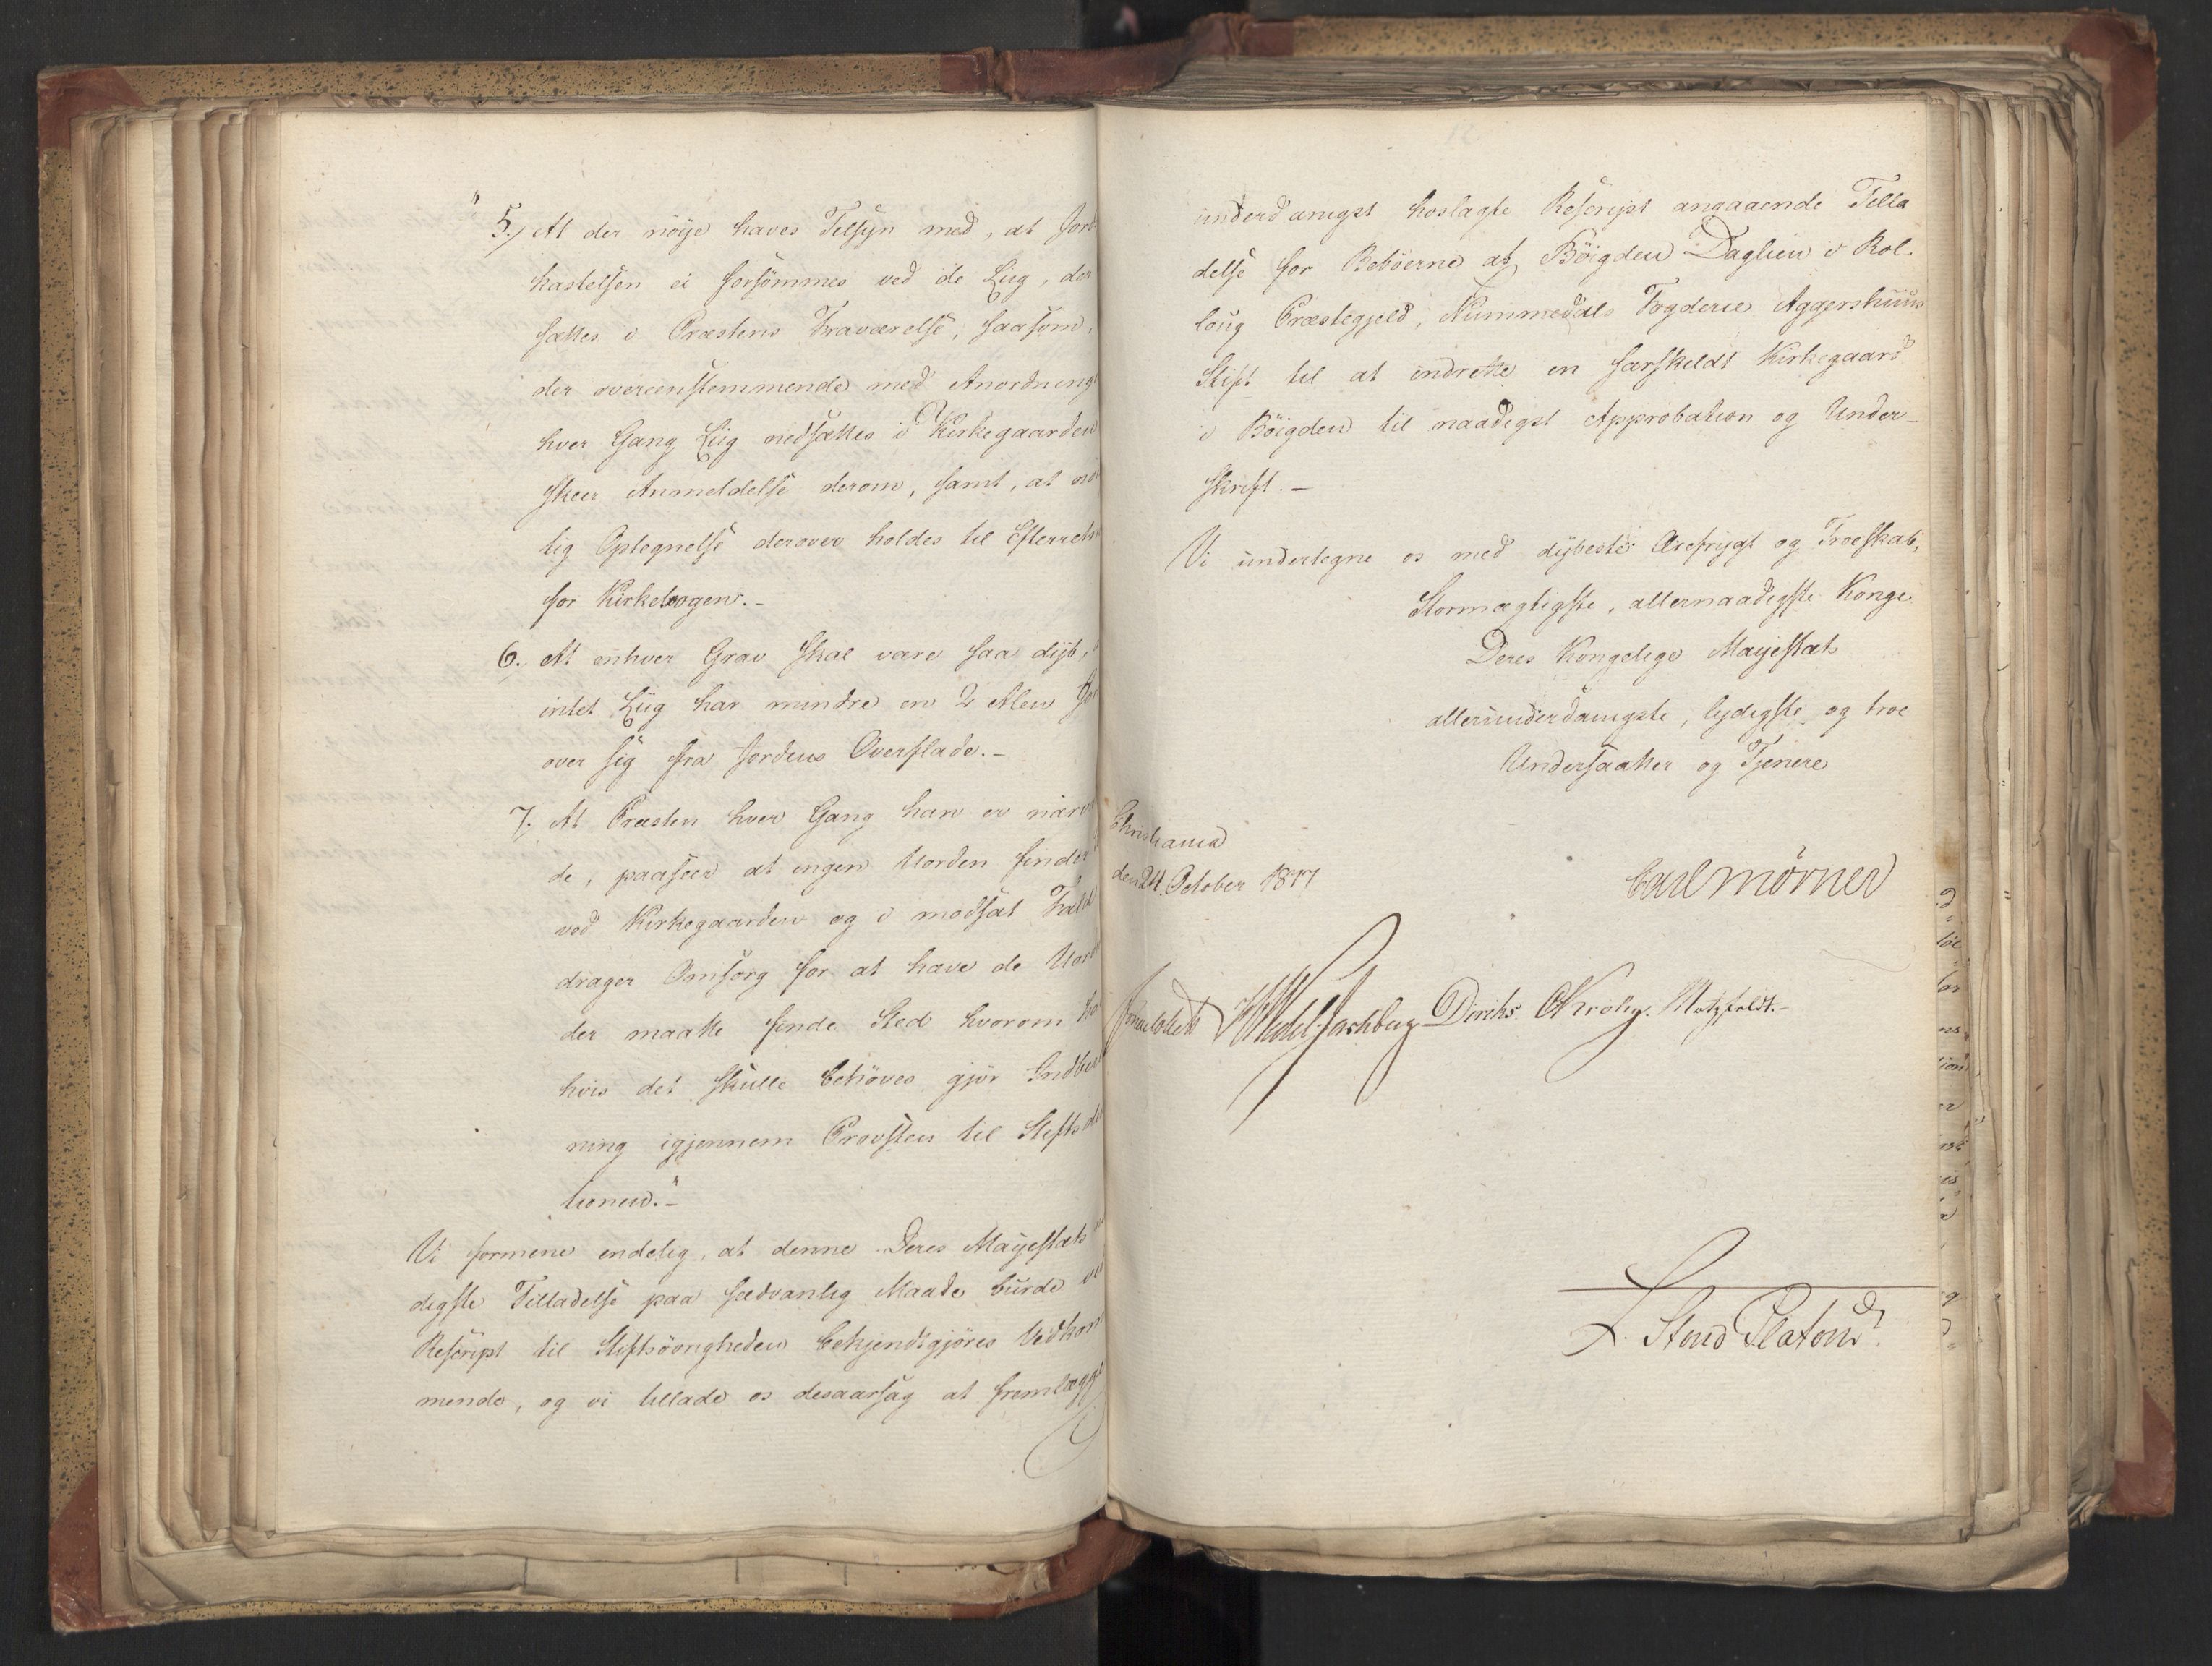 " 5./ At der nöije haves Tilsyn med, at Jord-
kastelsen ei forsömmes ved de Liig, der
sættes i Præstens Fraværelse, saasom,
der overeensstemmende med Anordning
hver Gang Liig nedsættes i Kirkegaarden
skeer Anmeldelse derom, samt, at nöi
tig Optegnelse derover holdes til Efterretn
for Kirkebogen.-
6./ At enhver Grav skal være saa dijb,
intet Liig har mindre en 2 Alen Jor
over sig fra Jordens Overflade.-
7./ At Præsten hver Gang han er nærv
de, paaseer at ingen Uorden finder
ved Kirkegaarden og i modsat Fald
drager Omsorg for at hæve de Uord
der maatte finde Sted hvorom ha
hvis det skulle behöves gjör Indber
ning igjennem Provsten til Stiftsdi
tionen."-
Vi formene endelig, at denne Deres Majestæts
digste Tilladelse paa sædvanlig Maade burde ved
Rescript til Stiftsövrigheden bekjendtgjöres Vedkom
mende, og vi tillade os desaarsag at fremlægge
underdanigst hoslagte Rescript angaaende Tilla
delse for Beboerne af Böigden Daglien i Rol-
loug Præstegjeld, Nummedals Fogderie Aggershuus
Stift til at indrette en særskeldt Kirkegaard
i Böigden til naadigst Approbation og Under-
skrift.-
Vi undertegne os med dijbeste Ærefrygt og Troeskab,
Stormægtigste, allernaadigste Konge
Deres Kongelige Majestæts
allerunderdanigste, lydigste og troe
Undersaatter og Tjenere
Christiania
den 24. October 1817
Carl Mörner
Jonas Collett HWedel Jarlsberg Diriks CKrohg. Motzfeldt.-
L. Stoud Platou